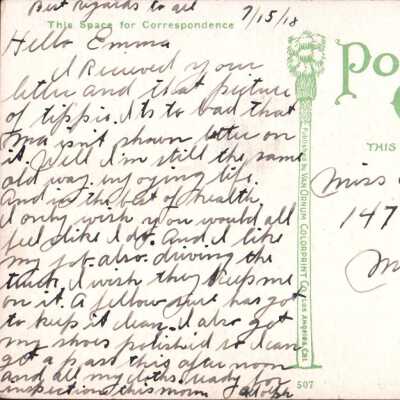 Best regards to all
This Space for Correspondence
7/15/18
Hello Emma
I Received your
letter and that picture
of tippie. Its to bad that
Ma isn't shown better on
it. Well I'm still the same
old way. enjoying life.
And in the best of health.
I only wish you would all
feel like I do. And I like
my job also. driving the
truck. I wish they keep me
on it. A fellow sure has got
to keep it clean. I also got
my shoes polished so I can
get a pass this afternoon
and all my cloths ready for
inspection this morn Adolph
Published by VAN ORNUM COLORPRINT CO. LOS ANGELES, CAL.
507
Po
THIS
Miss
147
M